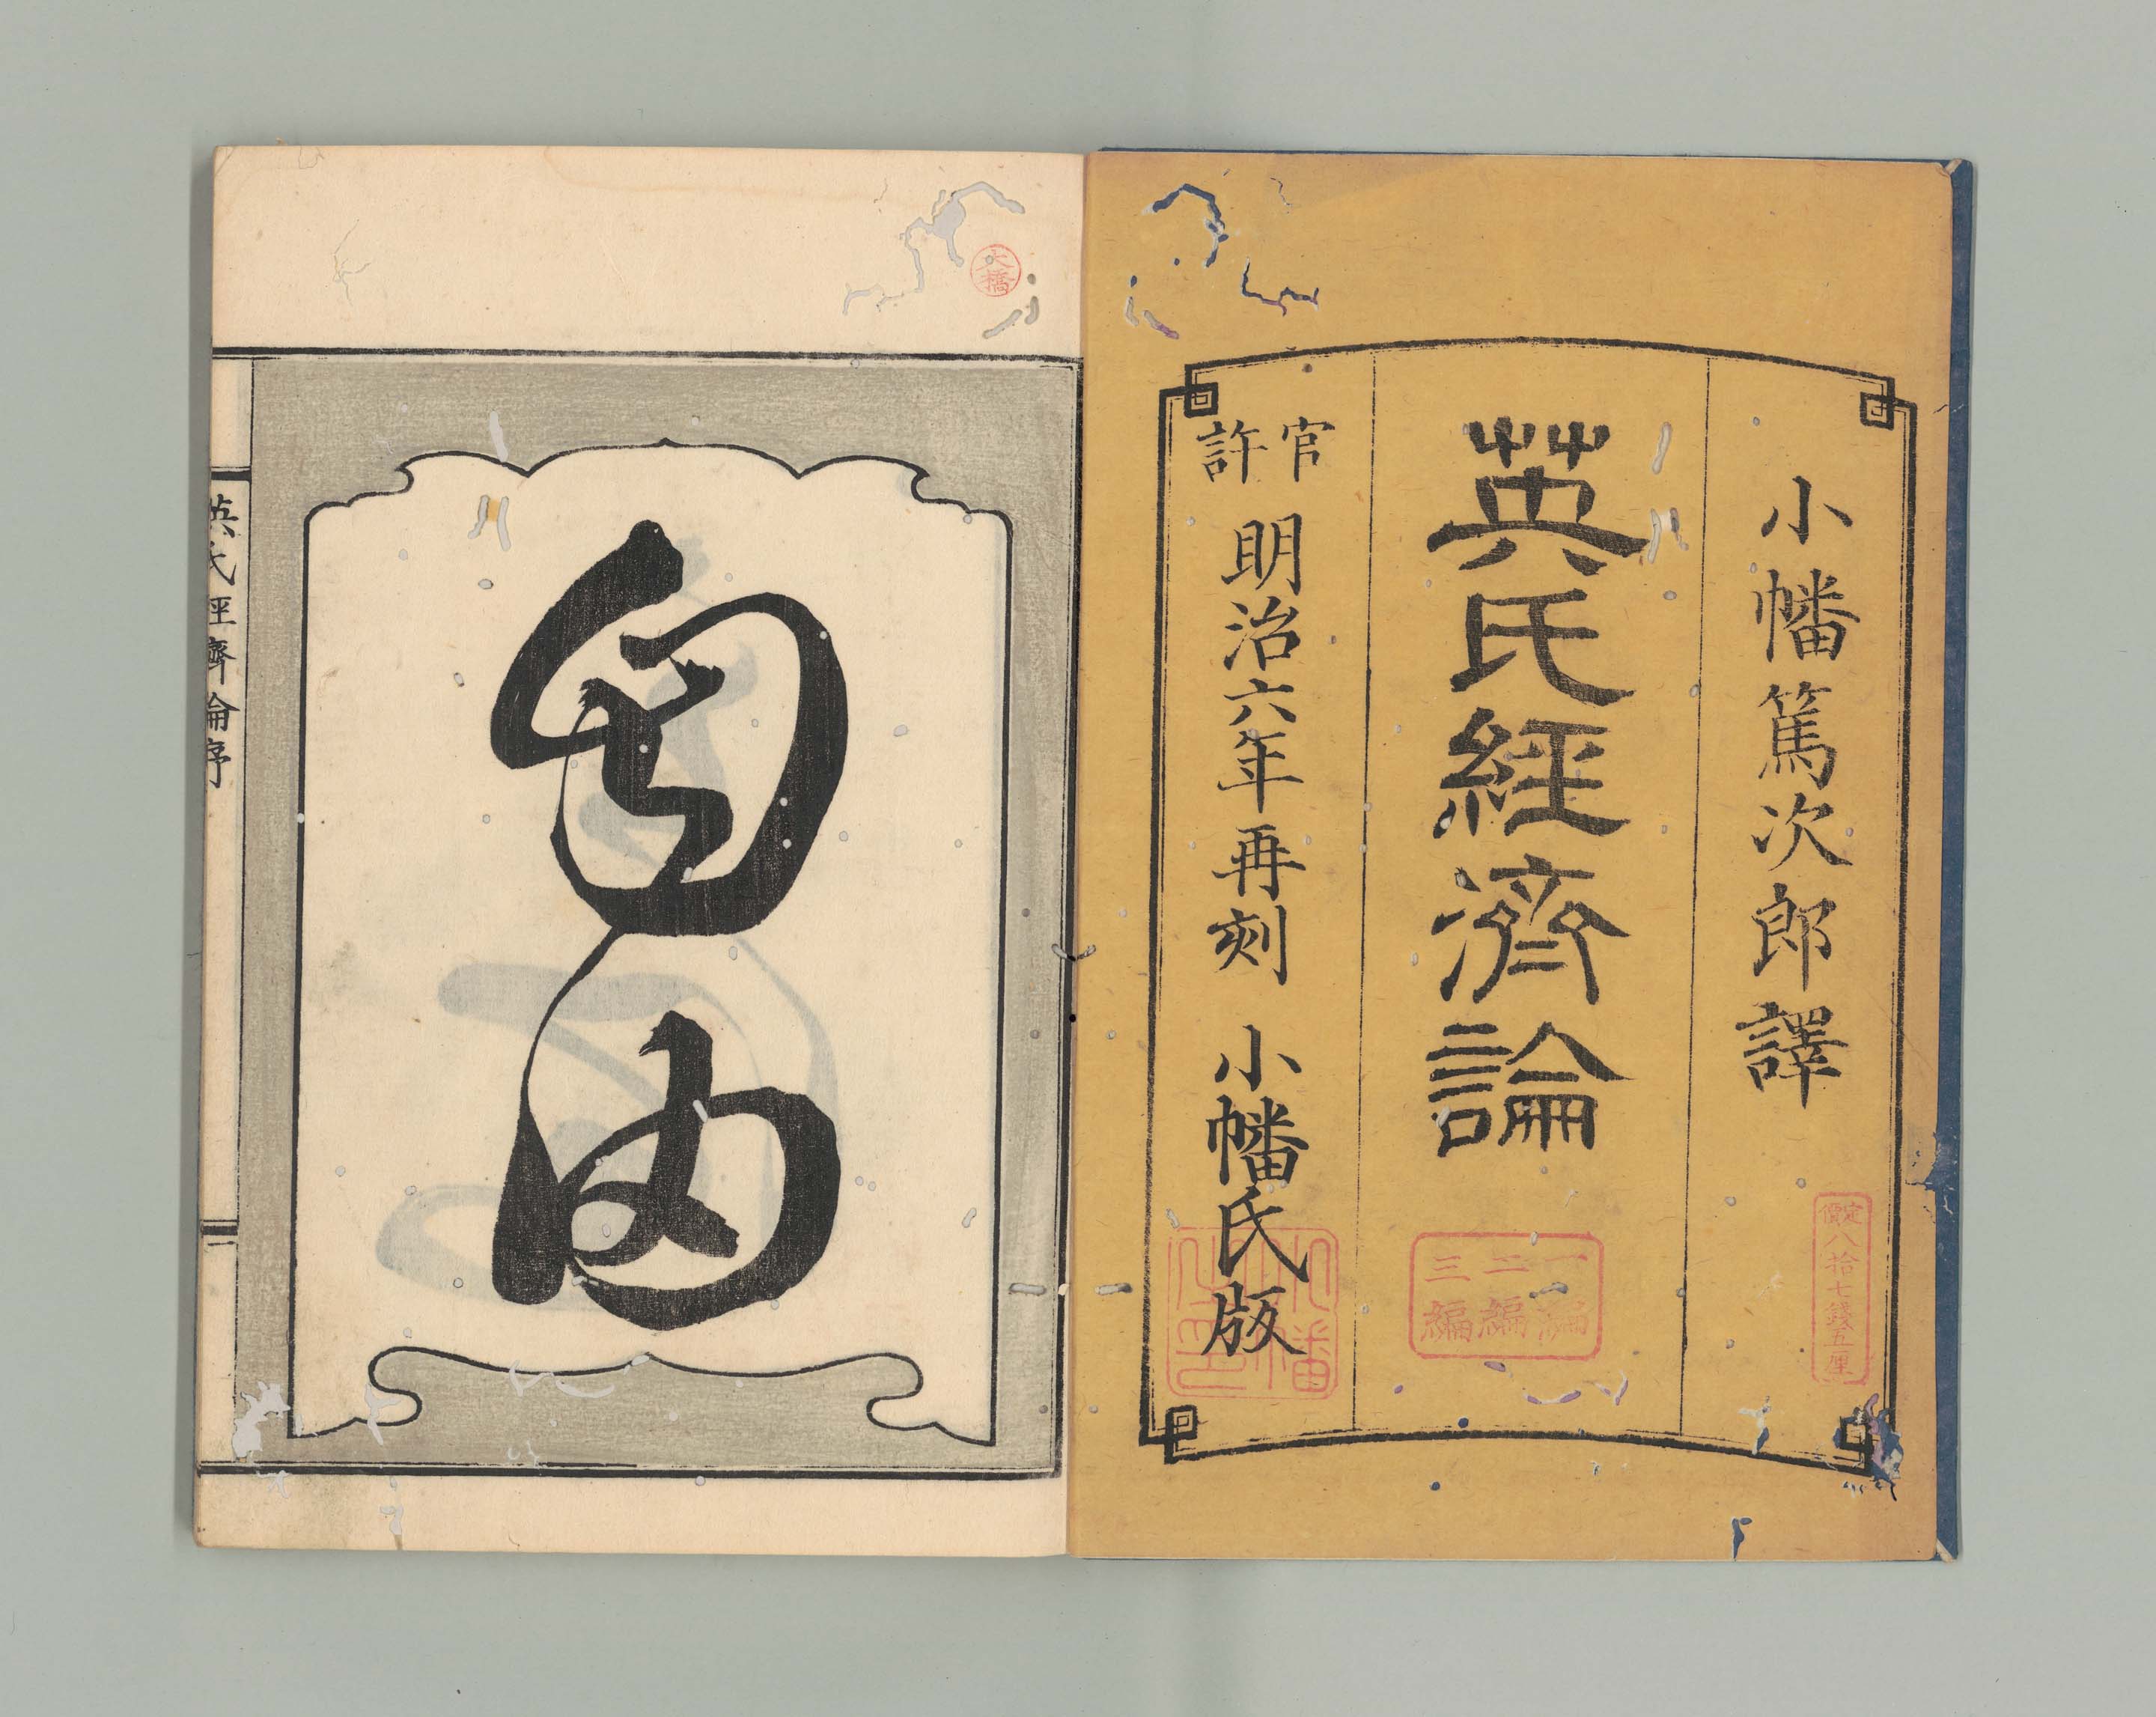 小幡篤次郎譯
定價八拾七錢五厘
英氏經濟論
一編
二編
三編
官許
明治六年再刻 小幡氏版
大橋
自由
英氏經濟論序